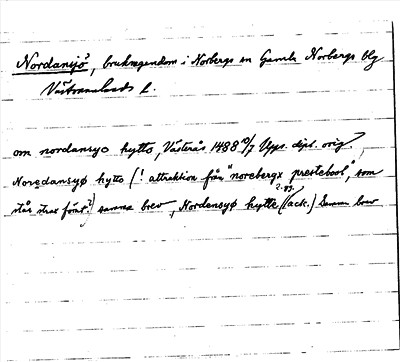 Nordansjö, bruksegendom i Norbergs sn Gamla Norbergs blg
Västmanlands l.
om nordansyo hytto, Västerås 1488 10/7 Upps. dipl. orig.
Noredansyø hytto (! attraktion från "norebergx prestebool", som
står strax förut?) samma brev, Nordensyø hytte (ack.) Samma brev
2 ggr.